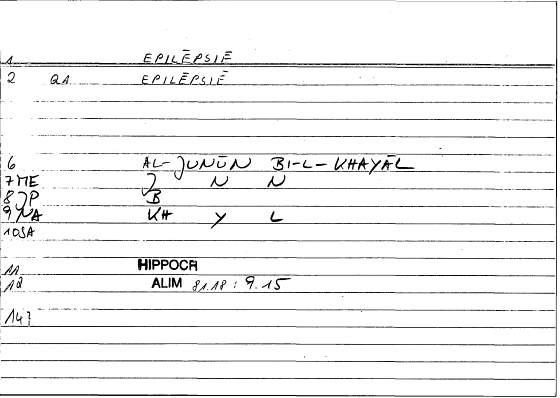 1 EPILĒPSIĒ
2 QA EPILĒPSIĒ
6 AL-JUNŪN BI-L-KHAYĀL
7 ME J N N
8 JP B
9 NA KH Y L
10 SA
11 HIPPOCR
12 ALIM 81.18 : 9.15
14